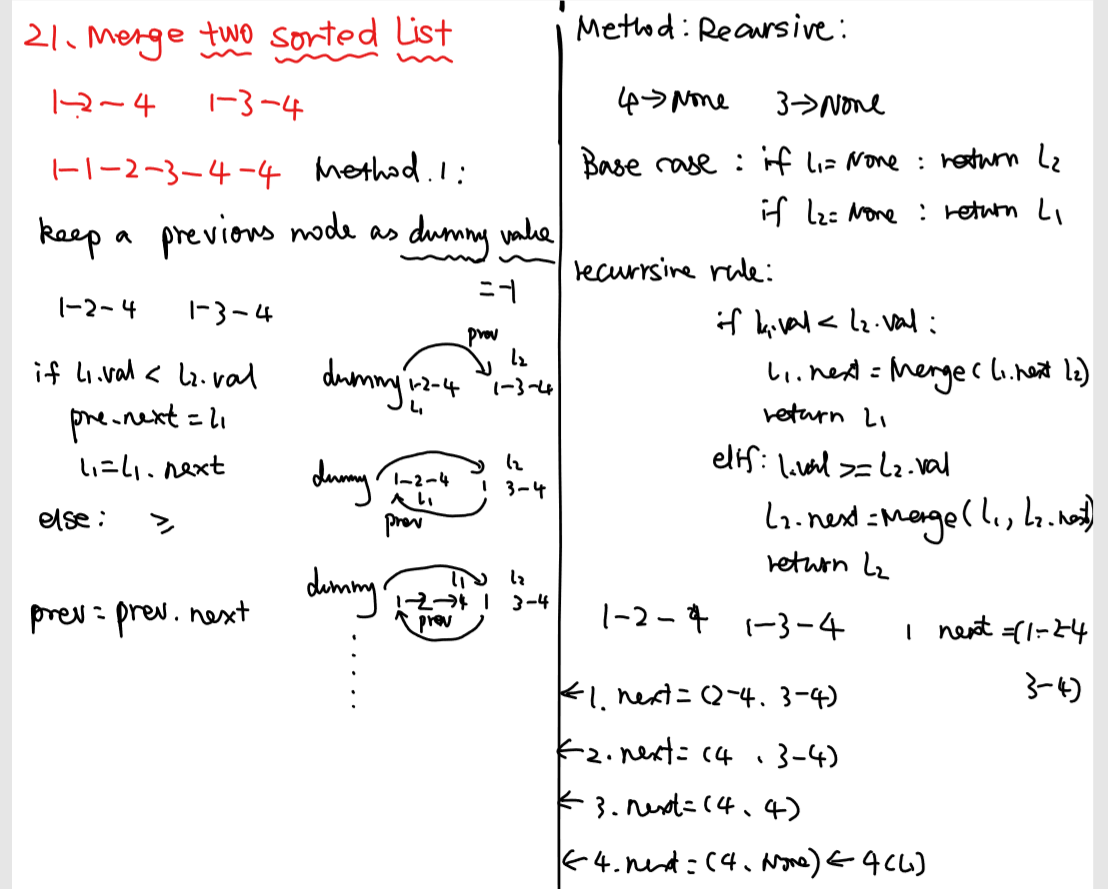 21、Merge two sorted List
1-2-4 1-3-4
1-1-2-3-4-4 Method.1:
keep a previous node as dummy value
=-1
1-2-4 1-3-4
if L1.val < L2.val
pre.next = L1
L1=L1.next
else: ≥
prev = prev.next
prev
L2
dummy 1-2-4 1-3-4
L1
L2
dummy 1-2-4 1 3-4
L1
prev
L1 L2
dummy 1-2→4 1 3-4
prev
Method: Recursive:
4→None 3→None
Base case: if L1= None: return L2
if L2= None: return L1
recurrsive rule:
if L1.val < L2.val:
L1.next = Merge(L1.next L2)
return L1
elif: L.val >= L2.val
L2.next = Merge(L1, L2.next)
return L2
1-2-4 1-3-4 1 next =(1-2-4
3-4)
←1. next= (2-4、3-4)
←2. next= (4、3-4)
←3. next= (4、4)
←4. next= (4、None) ← 4(L1)